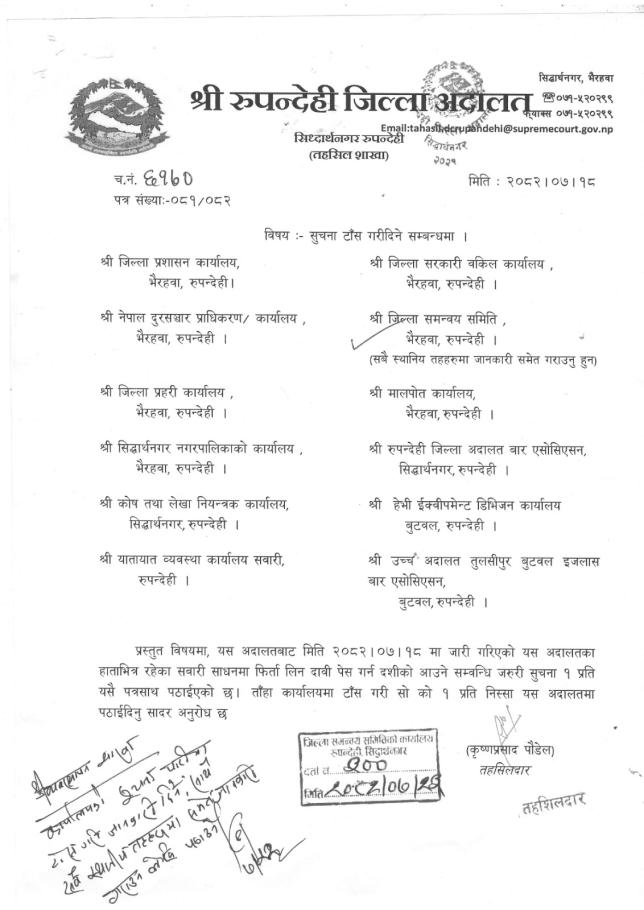 सिद्धार्थनगर, भैरहवा
श्री रुपन्देही जिल्ला अदालत
☎०७१-५२०२९९
फ्याक्स ०७१-५२०२९९
Email:tahasil.dcrupandehi@supremecourt.gov.np
सिध्दार्थनगर रुपन्देही
(तहसिल शाखा)
सिद्धार्थनगर
२०३१
च.नं. ६१६०
मिति : २०८२।०७।१८
पत्र संख्याः-०८१/०८२
विषय :- सुचना टाँस गरीदिने सम्बन्धमा ।
श्री जिल्ला प्रशासन कार्यालय,
भैरहवा, रुपन्देही।
श्री जिल्ला सरकारी वकिल कार्यालय ,
भैरहवा, रुपन्देही ।
श्री नेपाल दुरसञ्चार प्राधिकरण/ कार्यालय ,
भैरहवा, रुपन्देही ।
श्री जिल्ला समन्वय समिति ,
भैरहवा, रुपन्देही ।
(सबै स्थानिय तहहरुमा जानकारी समेत गराउनु हुन)
श्री जिल्ला प्रहरी कार्यालय ,
भैरहवा, रुपन्देही ।
श्री मालपोत कार्यालय,
भैरहवा, रुपन्देही ।
श्री सिद्धार्थनगर नगरपालिकाको कार्यालय ,
भैरहवा, रुपन्देही ।
श्री रुपन्देही जिल्ला अदालत बार एसोसिएसन,
सिद्धार्थनगर, रुपन्देही ।
श्री कोष तथा लेखा नियन्त्रक कार्यालय,
सिद्धार्थनगर, रुपन्देही ।
श्री हेभी ईक्वीपमेन्ट डिभिजन कार्यालय
बुटवल, रुपन्देही ।
श्री यातायात व्यवस्था कार्यालय सवारी,
रुपन्देही ।
श्री उच्च अदालत तुलसीपुर बुटवल इजलास
बार एसोसिएसन,
बुटवल, रुपन्देही ।
प्रस्तुत विषयमा, यस अदालतबाट मिति २०८२।०७।१८ मा जारी गरिएको यस अदालतका
हाताभित्र रहेका सवारी साधनमा फिर्ता लिन दावी पेस गर्न दशीको आउने सम्वन्धि जरुरी सुचना १ प्रति
यसै पत्रसाथ पठाईएको छ। ताँहा कार्यालयमा टाँस गरी सो को १ प्रति निस्सा यस अदालतमा
पठाईदिनु सादर अनुरोध छ
जिल्ला समन्वय समितिको कार्यालय
रुपन्देही, सिद्धार्थनगर
दर्ता नं.
मिति
(कृष्णप्रसाद पौडेल)
तहसिलदार
तहशिलदार